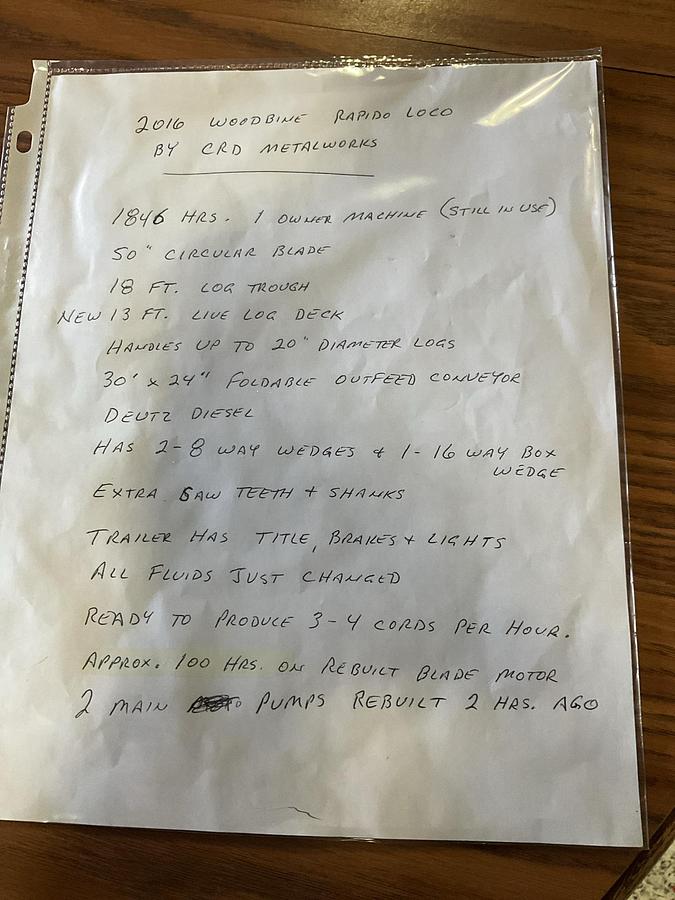 2016 WOODBINE RAPIDO LOCO
BY CRD METALWORKS
1846 HRS. 1 OWNER MACHINE (STILL IN USE)
50" CIRCULAR BLADE
18 FT. LOG TROUGH
NEW 13 FT. LIVE LOG DECK
HANDLES UP TO 20" DIAMETER LOGS
30' x 24" FOLDABLE OUTFEED CONVEYOR
DEUTZ DIESEL
HAS 2-8 WAY WEDGES & 1-16 WAY BOX
WEDGE
EXTRA SAW TEETH + SHANKS
TRAILER HAS TITLE, BRAKES + LIGHTS
ALL FLUIDS JUST CHANGED
READY TO PRODUCE 3-4 CORDS PER HOUR.
APPROX. 100 HRS. ON REBUILT BLADE MOTOR
2 MAIN PUMPS REBUILT 2 HRS. AGO